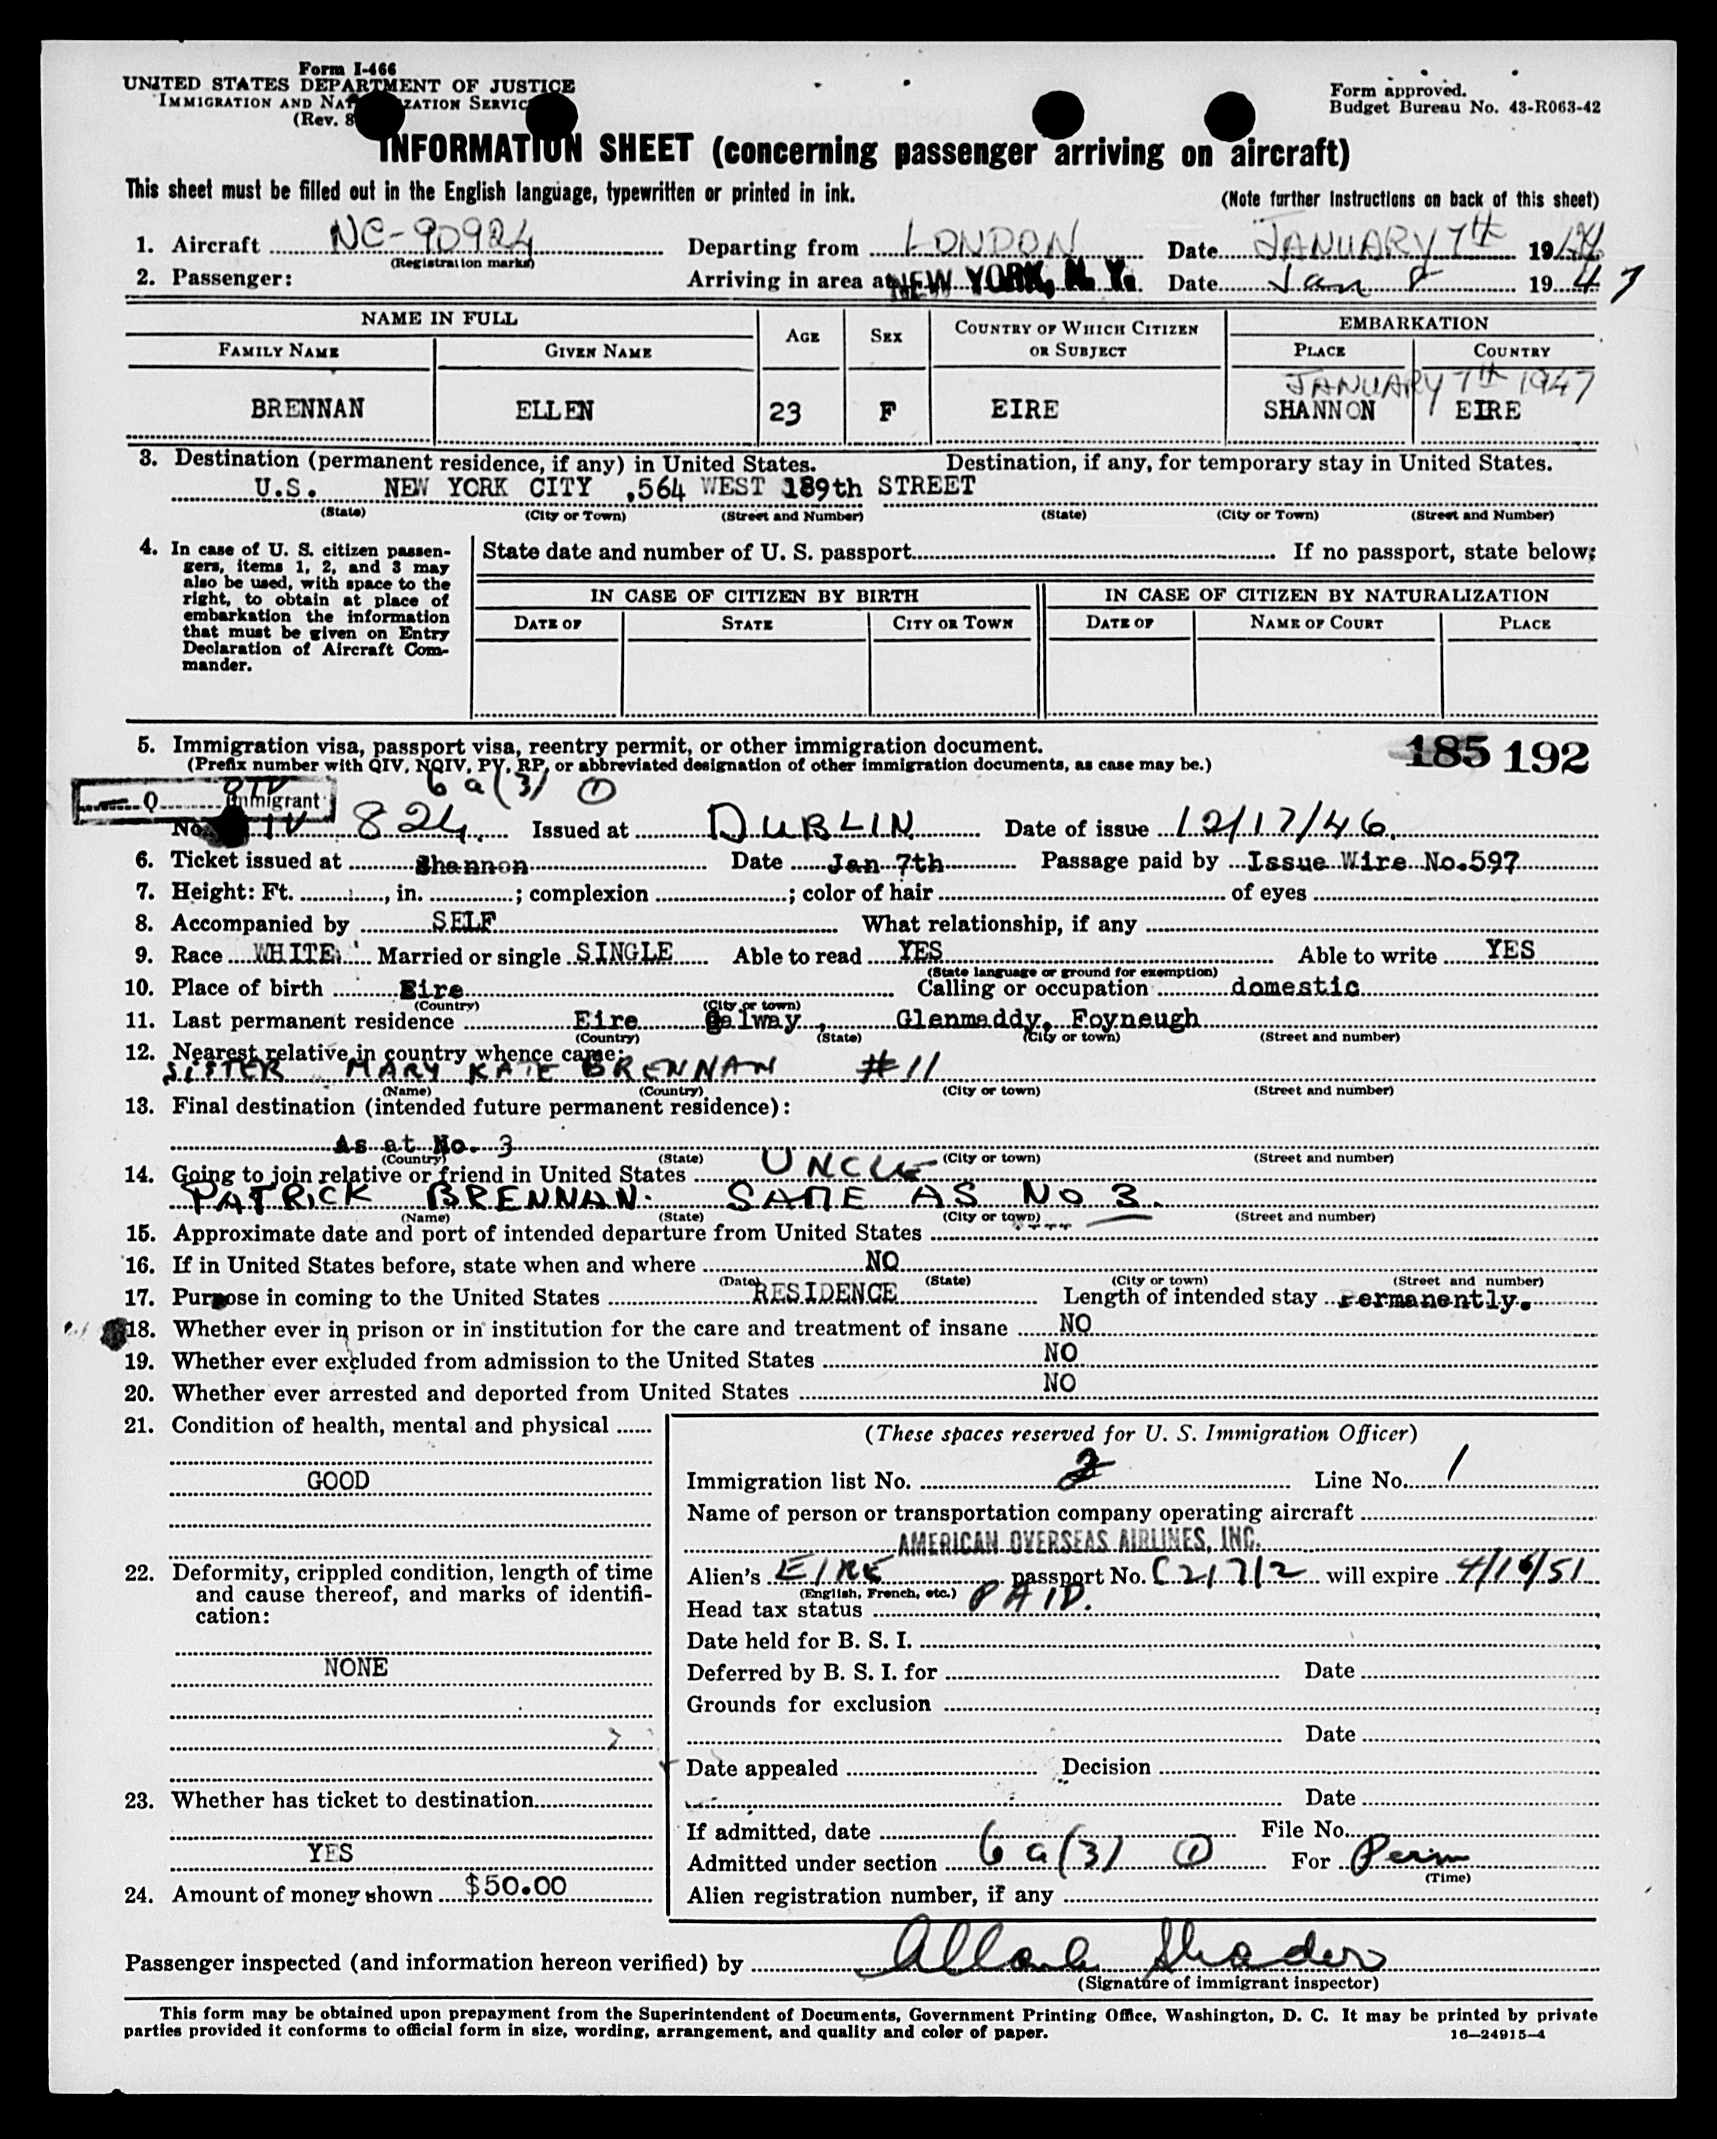 Form I-466
UNITED STATES DEPARTMENT OF JUSTICE
IMMIGRATION AND NATURALIZATION SERVICE
(Rev. 8
Form approved.
Budget Bureau No. 43-R063-42
INFORMATION SHEET (concerning passenger arriving on aircraft)
This sheet must be filled out in the English language, typewritten or printed in ink.
(Note further instructions on back of this sheet)
1. Aircraft NC-90924 Departing from LONDON Date JANUARY 7th 1947
(Registration marks)
2. Passenger: Arriving in area at NEW YORK, N. Y. Date Jan 8 1947
NAME IN FULL AGE SEX COUNTRY OF WHICH CITIZEN OR SUBJECT EMBARKATION
FAMILY NAME GIVEN NAME PLACE COUNTRY
JANUARY 7th 1947
BRENNAN ELLEN 23 F EIRE SHANNON EIRE
3. Destination (permanent residence, if any) in United States. Destination, if any, for temporary stay in United States.
U.S. NEW YORK CITY ,564 WEST 189th STREET
(State) (City or Town) (Street and Number) (State) (City or Town) (Street and Number)
4. In case of U. S. citizen passengers, items 1, 2, and 3 may
also be used, with space to the
right, to obtain at place of
embarkation the information
that must be given on Entry
Declaration of Aircraft Commander.
State date and number of U. S. passport If no passport, state below:
IN CASE OF CITIZEN BY BIRTH IN CASE OF CITIZEN BY NATURALIZATION
DATE OF STATE CITY OR TOWN DATE OF NAME OF COURT PLACE
5. Immigration visa, passport visa, reentry permit, or other immigration document.
(Prefix number with QIV, NQIV, PV, RP, or abbreviated designation of other immigration documents, as case may be.)
185 192
6 a (3) 1
QIV
Q Immigrant
No. IV 824 Issued at DUBLIN Date of issue 12/17/46
6. Ticket issued at Shannon Date Jan 7th Passage paid by Issue Wire No.597
7. Height: Ft. , in. ; complexion ; color of hair of eyes
8. Accompanied by SELF What relationship, if any
9. Race WHITE Married or single SINGLE Able to read YES Able to write YES
(State language or ground for exemption)
10. Place of birth Eire Calling or occupation domestic
(Country) (City or town)
11. Last permanent residence Eire Galway, Glenmaddy, Foyneugh
(Country) (State) (City or town) (Street and number)
12. Nearest relative in country whence came:
SISTER MARY KATE BRENNAN #11
(Name) (Country) (City or town) (Street and number)
13. Final destination (intended future permanent residence):
As at No. 3
(Country) (State) (City or town) (Street and number)
14. Going to join relative or friend in United States UNCLE
PATRICK BRENNAN. SAME AS NO 3.
(Name) (State) (City or town) (Street and number)
15. Approximate date and port of intended departure from United States
16. If in United States before, state when and where NO
(Date) (State) (City or town) (Street and number)
17. Purpose in coming to the United States RESIDENCE Length of intended stay Permanently.
18. Whether ever in prison or in institution for the care and treatment of insane NO
19. Whether ever excluded from admission to the United States NO
20. Whether ever arrested and deported from United States NO
21. Condition of health, mental and physical
GOOD
22. Deformity, crippled condition, length of time
and cause thereof, and marks of identification:
NONE
23. Whether has ticket to destination
YES
24. Amount of money shown $50.00
(These spaces reserved for U. S. Immigration Officer)
Immigration list No. 2 Line No. 1
Name of person or transportation company operating aircraft
AMERICAN OVERSEAS AIRLINES, INC.
Alien's EIRE passport No. C21712 will expire 4/16/51
(English, French, etc.)
Head tax status PAID.
Date held for B. S. I.
Deferred by B. S. I. for Date
Grounds for exclusion
Date
Date appealed Decision
Date
If admitted, date File No.
Admitted under section 6 a (3) 1 For Perm
(Time)
Alien registration number, if any
Passenger inspected (and information hereon verified) by
(Signature of immigrant inspector)
This form may be obtained upon prepayment from the Superintendent of Documents, Government Printing Office, Washington, D. C. It may be printed by private
parties provided it conforms to official form in size, wording, arrangement, and quality and color of paper.
16—24915-4